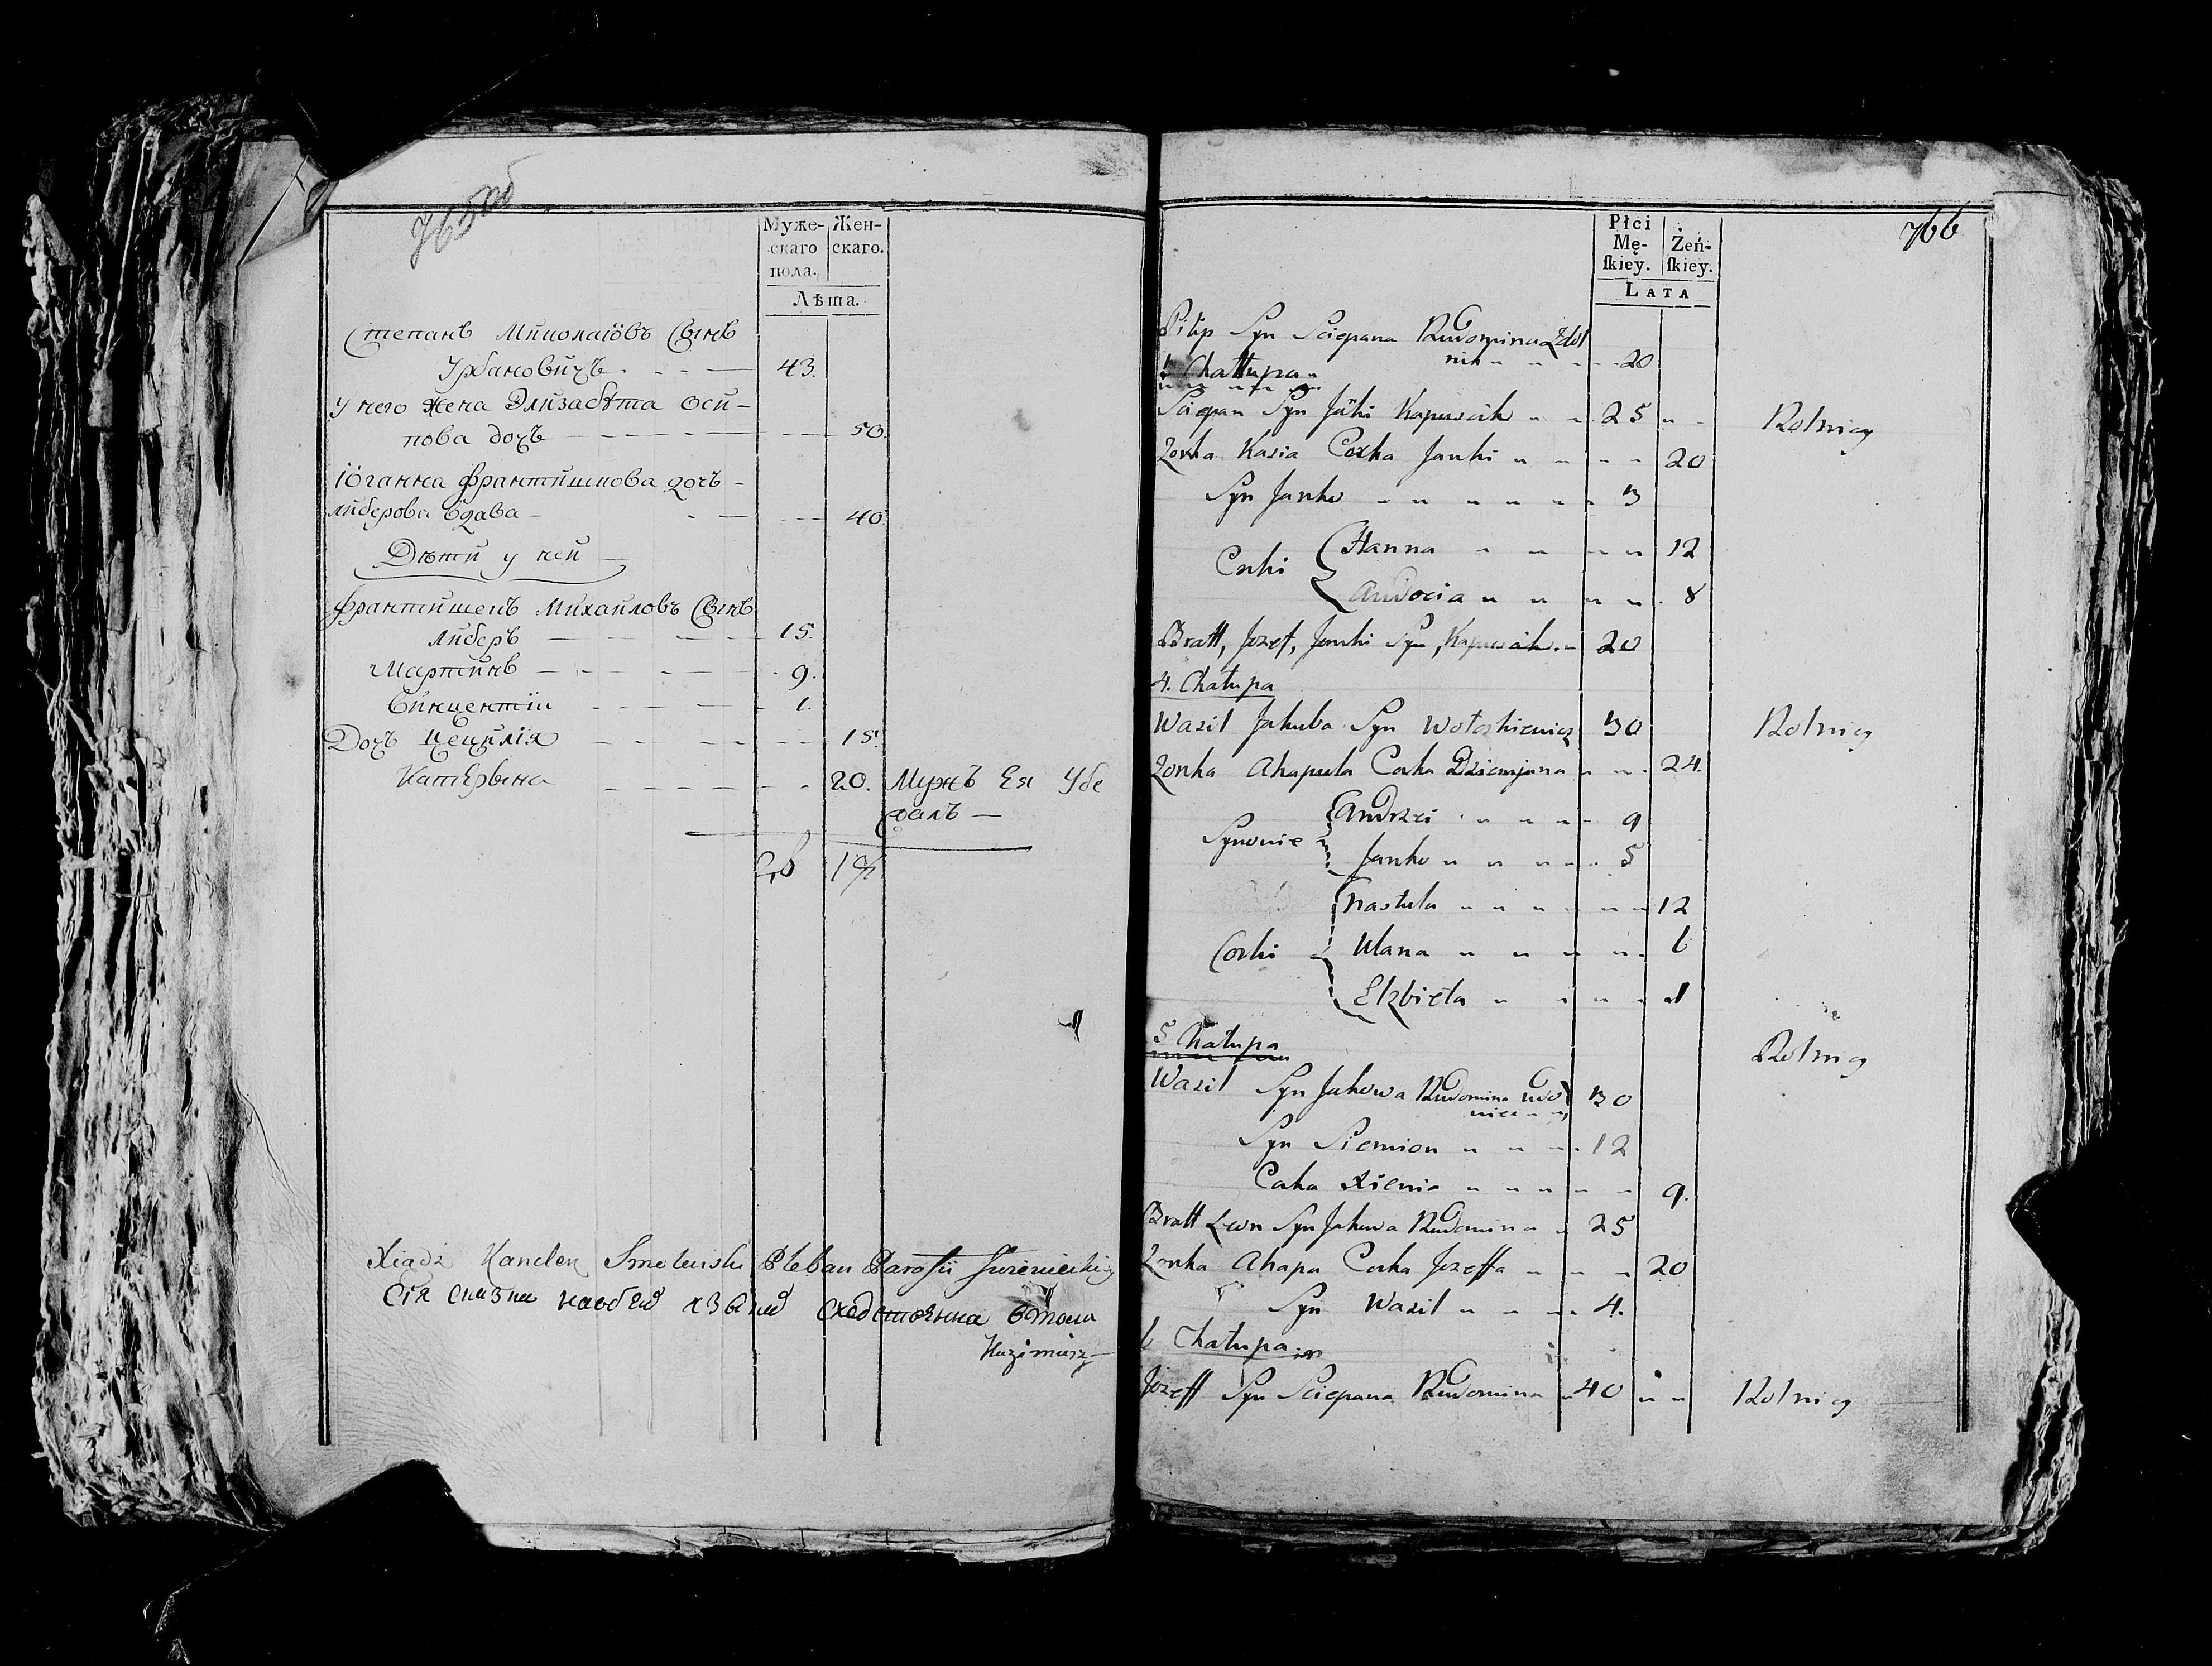 765об
Муже-
скаго
пола.
Жен-
скаго.
Лѣта.
Степанъ Миколаіовъ Сынъ
Урбановичъ 43.
У него Жена Элизабѣта Оси-
пова дочъ 50.
Іоганна Франтишкова дочъ
Либерова вдава 40.
Дѣти у ней
Франтишекъ Михайловъ Сынъ
Либеръ 15.
Мартинъ 9.
Винцентіи 1.
Дочъ Цецилія 15.
Катерына 20. Мужъ Ея Убе
26 19
Xiądz Smolenski Pleban Parafii
Сія сказка
Kazimierz
766
Płci
Mę-
ſkiey.
Żeń-
ſkiey.
LATA
Pilip Syn Sciepana Rudomina Zdol
nik 20
Chałłupa
Sciepan Syn Janki Kapuscik 25 Rolnicy
Zonka Kasia Corka Janki 20
Syn Janko 3
Corki Hanna 12
Audocia 8
Bratt, Jozef, Janki Syn, Kapuscik 20
4. Chałupa
Wasil Jakuba Syn Wołoskiewicz 30 Rolnicy
Zonka Ahapula Corka Dziemjana 24.
Synowie Andrzei 9
Janko 5
Corki Nastula 12
Ulana 6
Elzbieta 1
5 Chałupa Rolnicy
Wasil Syn Jakowa Rudomina wdo
wiec 30
Syn Siemion 12
Corka Xienia 9.
Bratt Lewn Syn Jakowa Rudomina 25
Zonka Ahapa Corka Jozeffa 20
Syn Wasil 4.
6 Chałupa
Jozeff Syn Sciepana Rudomina 40 Rolnicy